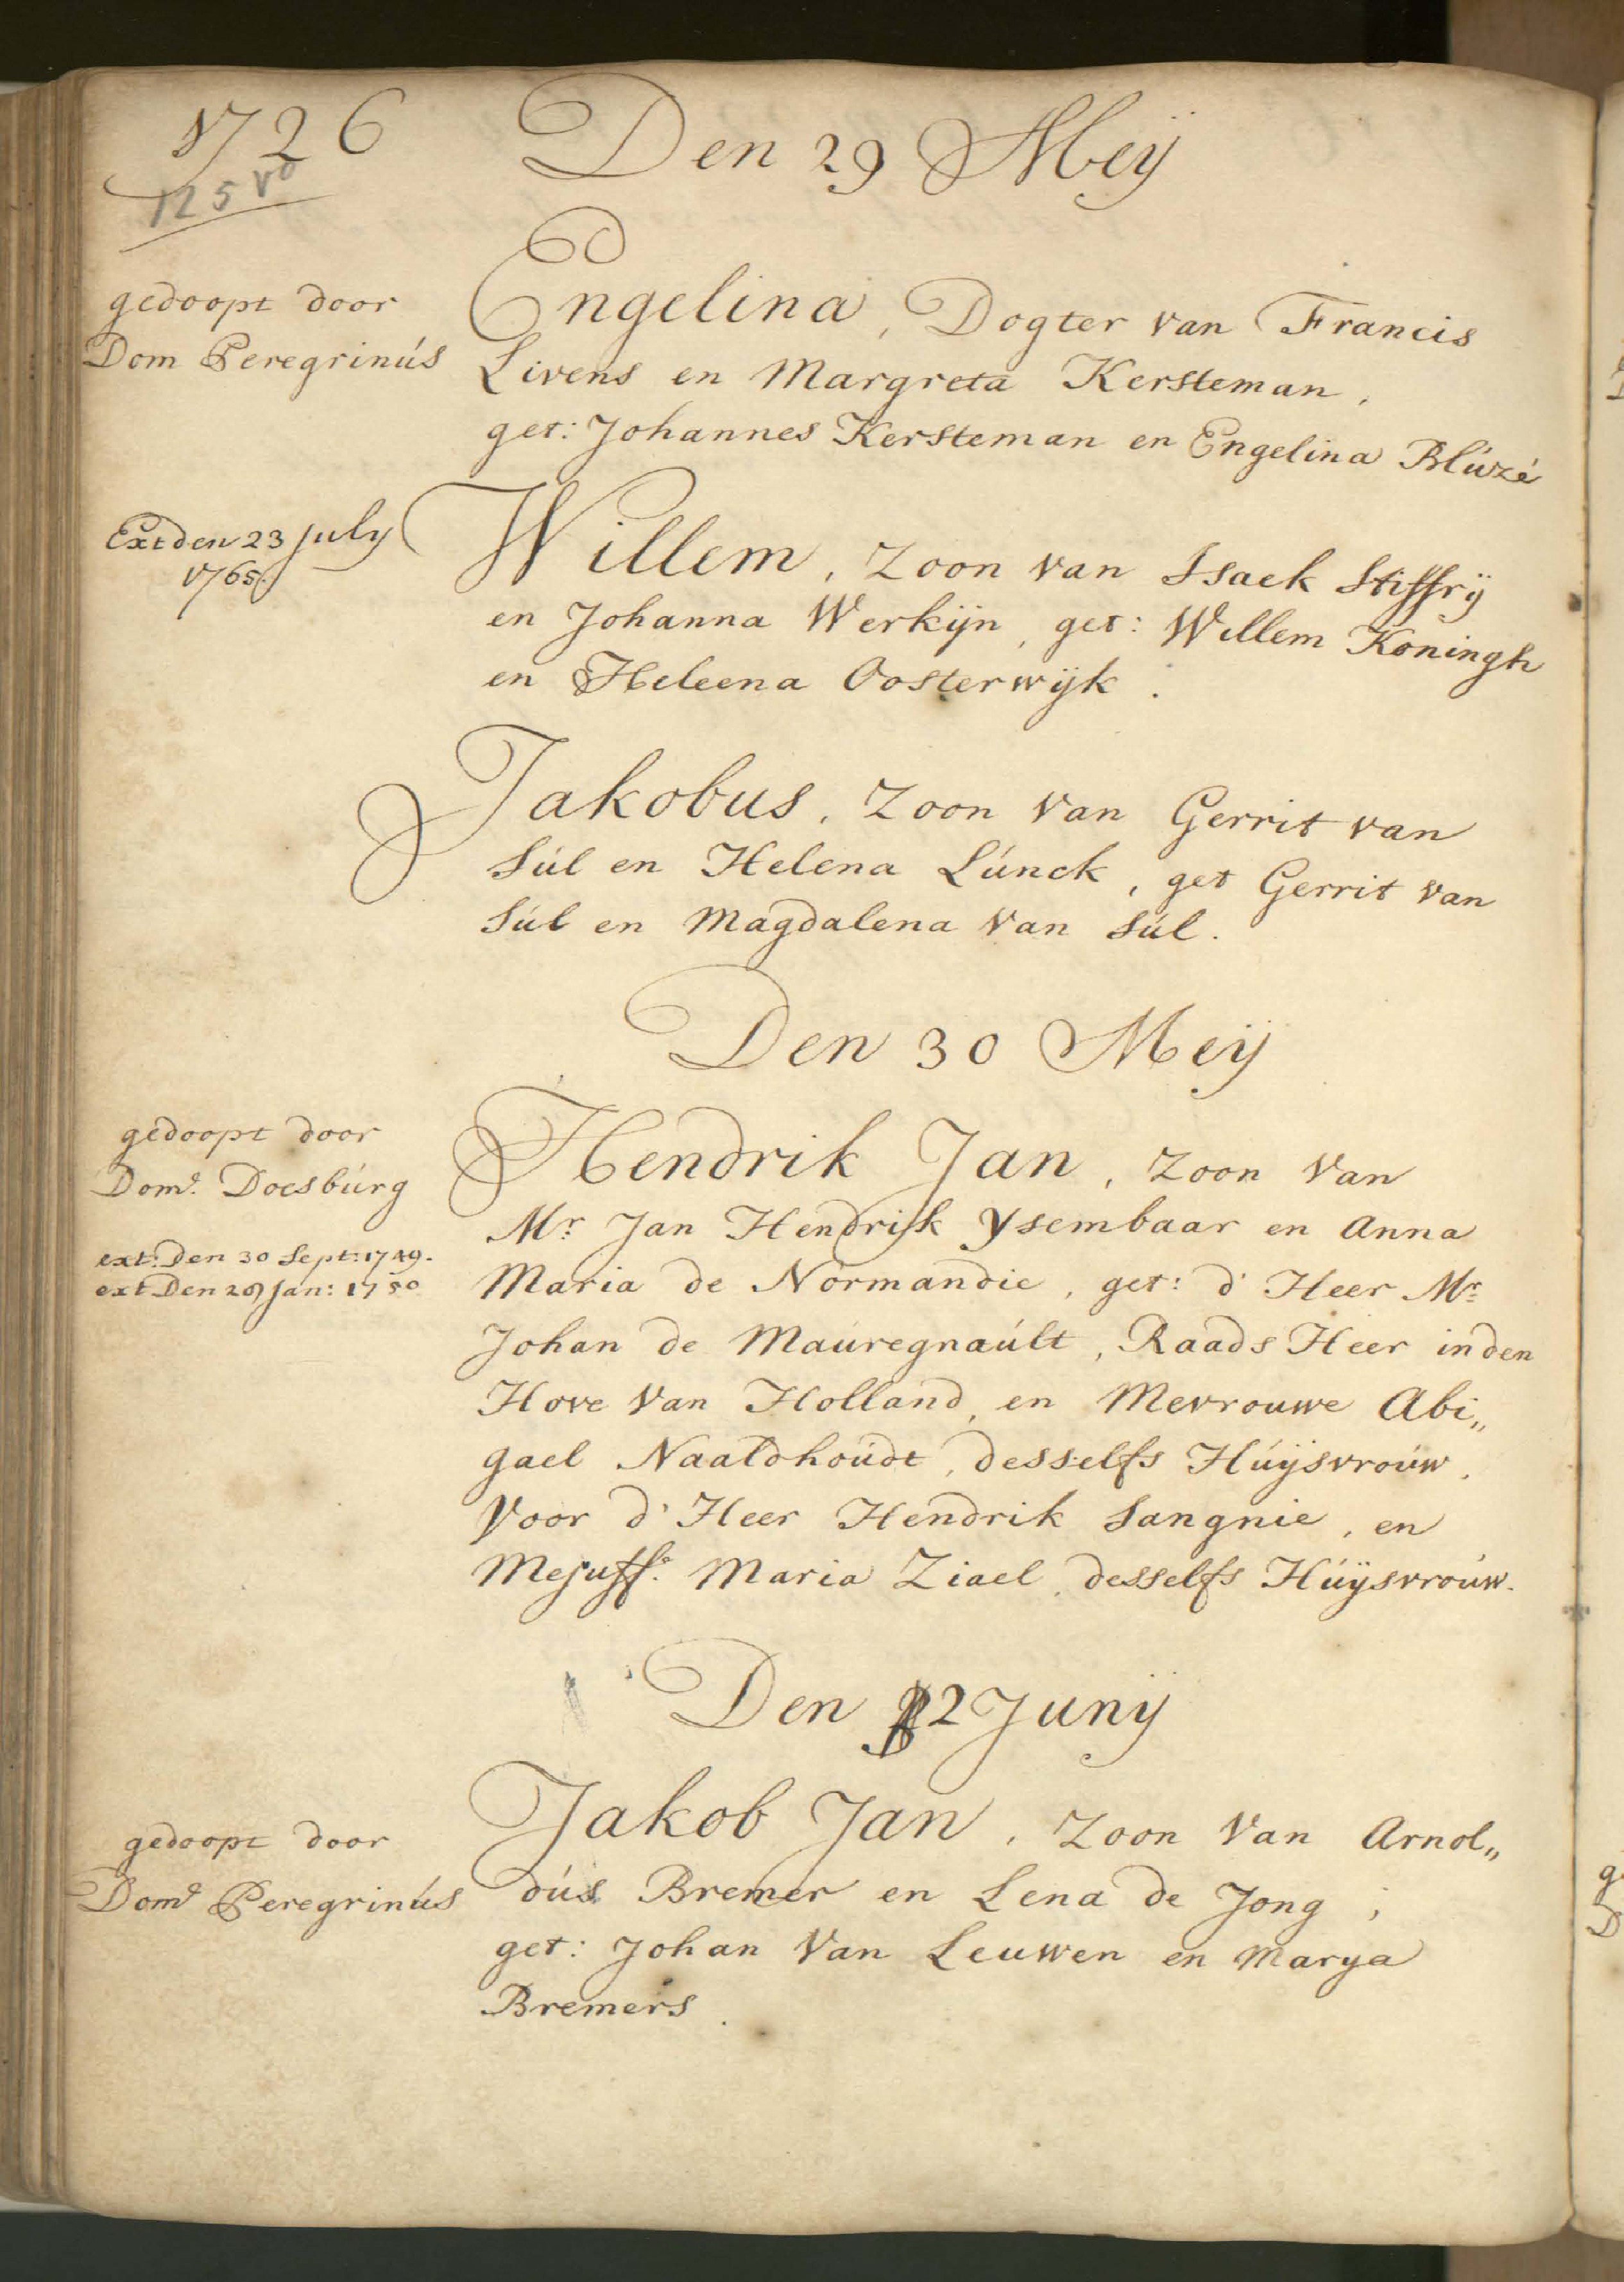 1726
125 vo
Den 29 Meij
gedoopt door
Dom Peregrinús
Engelina, Dogter van Francis
Livens en Margreta Kersteman,
get: Johannes Kersteman en Engelina Blúzé
Ext den 23 July
1765.
Willem, Zoon van Isaek Stiffrij
en Johanna Werkijn, get: Willem Koningh
en Heleena Oosterwijk.
Jakobus, Zoon van Gerrit van
Súl en Helena Lúnck, get Gerrit van
Súl en Magdalena van Súl.
Den 30 Meij
gedoopt door
Dom.e Doesbúrg
ext: Den 30 Sept: 1749.
ext Den 29 Jan: 1750
Hendrik Jan, Zoon van
Mr. Jan Hendrik Ysembaar en Anna
Maria de Normandie, get: d' Heer Mr.
Johan de Maúregnaúlt, Raads Heer in den
Hove van Holland, en Mevrouwe Abi„
gael Naaldhoúdt, desselfs Húijsvroúw,
Voor d' Heer Hendrik Sangnie, en
Mejuff.e Maria Ziael, desselfs Húijsvroúw.
Den 2 Junij
gedoopt door
Dom.e Peregrinús
Jakob Jan, Zoon van Arnol„
dús Bremer en Lena de Jong;
get: Johan van Leuwen en Marya
Bremers.